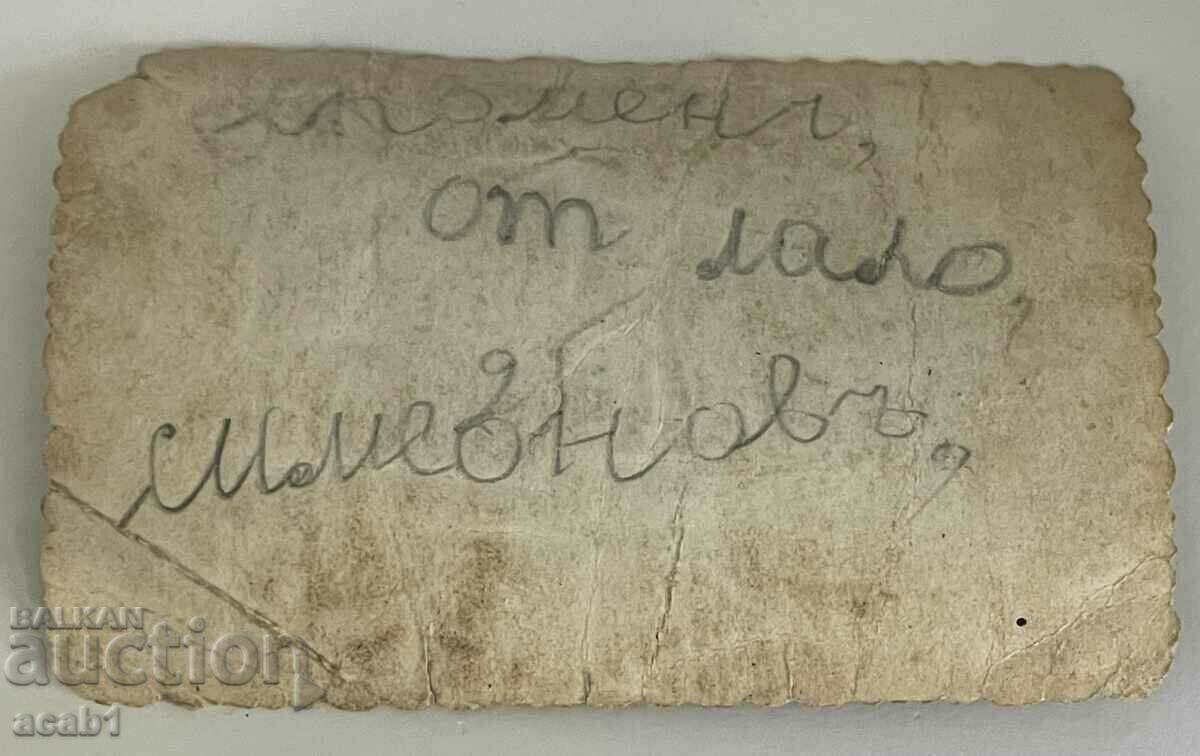 спомень,
от лало,
симеоновъ,
BALKAN
auction
acab1